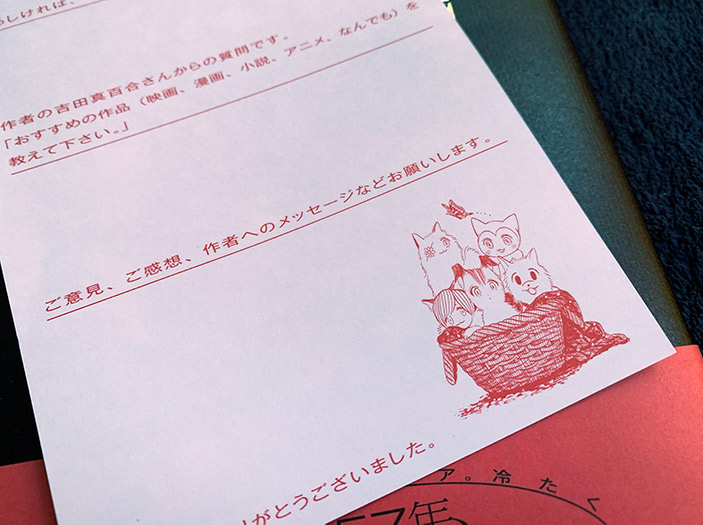 ろしければ、
作者の吉田真百合さんからの質問です。
「おすすめの作品（映画、漫画、小説、アニメ、なんでも）を
教えて下さい。」
ご意見、ご感想、作者へのメッセージなどお願いします。
がとうございました。
ア。冷たく
57年